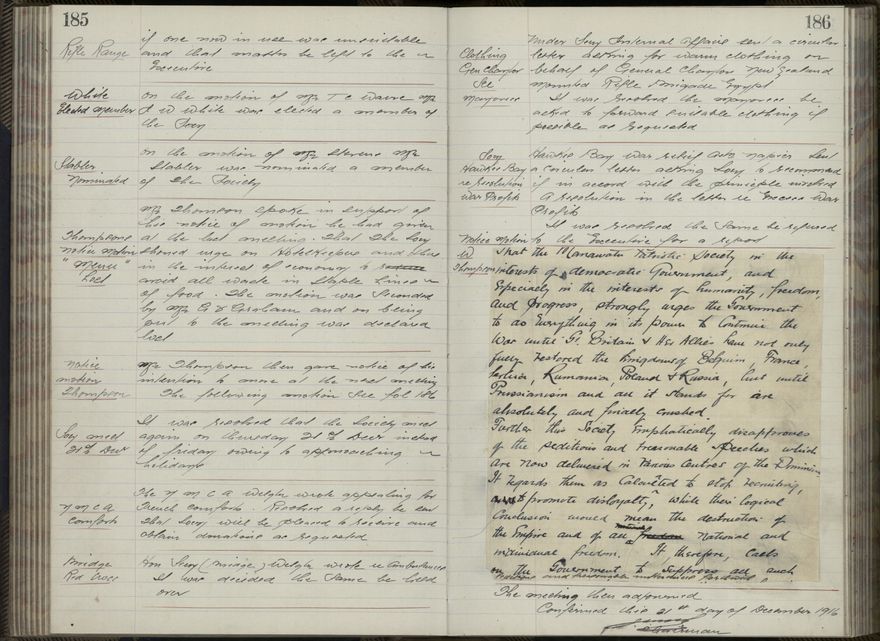 185
Rifle Range
if one now in use was unsuitable
and that matter be left to the
Executive
White
Elected member
On the motion of Mr T C Warne Mr
W White was elected a member of
the Socy
Stabler
Nominated
On the motion of Mr Stevens Mr
Stabler was nominated a member
of the Society
Thompsons
notice motion
"Menu"
Lost
Mr Thomson spoke in support of
his notice of motion he had given
at the last meeting. That the Socy
should urge on Hotelkeepers and
in the interest of economy to
avoid all waste in Staple Lines
of food. The motion was seconded
by Mr G Graham and on being
put to the meeting was declared
lost
Notice
motion
Thompson
Mr Thompson then gave notice of his
intention to move at the next meeting
The following motion See fol 186
Socy meet
21st Decr
It was resolved that the Society meet
again on Thursday 21st Decr instead
of Friday owing to approaching
holidays
Y M C A
Comforts
The Y M C A Welgtn wrote appealing for
French comforts. Resolved a reply be sent
that Socy will be pleased to receive and
obtain donations as requested
Bridge
Red Cross
Hon Secy (Bridge) Welgtn wrote re
It was decided the same be held
over
186
Clothing
Gen Chaytor
See
Mayoress
Under Secy Internal Affairs sent a circular
letter asking for warm clothing on
behalf of General Chaytor New Zealand
Mounted Rifle Brigade Egypt
It was resolved the Mayoress be
asked to forward suitable clothing if
possible as requested
Socy
Hawkes Bay
re Resolution
War Profits
Hawkes Bay War relief Assn Napier sent
a circular letter asking Socy to recommend
if in accord with the principle involved
a resolution in the letter re Excess War
Profits
It was resolved the same be refused
to the Executive for a report
Notice Motion
W
Thompson
That the Manawatu Patriotic Society in the
interests of democratic Government, and
Especially in the interests of humanity, freedom,
and progress, strongly urges the Government
to do Everything in its power to Continue the
War until Gt. Britain & Her Allies have not only
fully restored the Kingdoms of Belgium, France,
Serbia, Rumania, Poland & Russia, but until
Prussianism and all it stands for are
absolutely and finally crushed.
Further this Society Emphatically disapproves
of the seditious and treasonable speeches which
are now delivered in various centres of the Dominion
It regards them as Calculated to stop recruiting,
& to promote disloyalty, while their logical
Conclusion would mean the destruction of
the Empire and of all National and
individual freedom. It therefore, calls
on the Government to suppress all such
The meeting then adjourned
Confirmed this 21st day of December 1916
Chairman